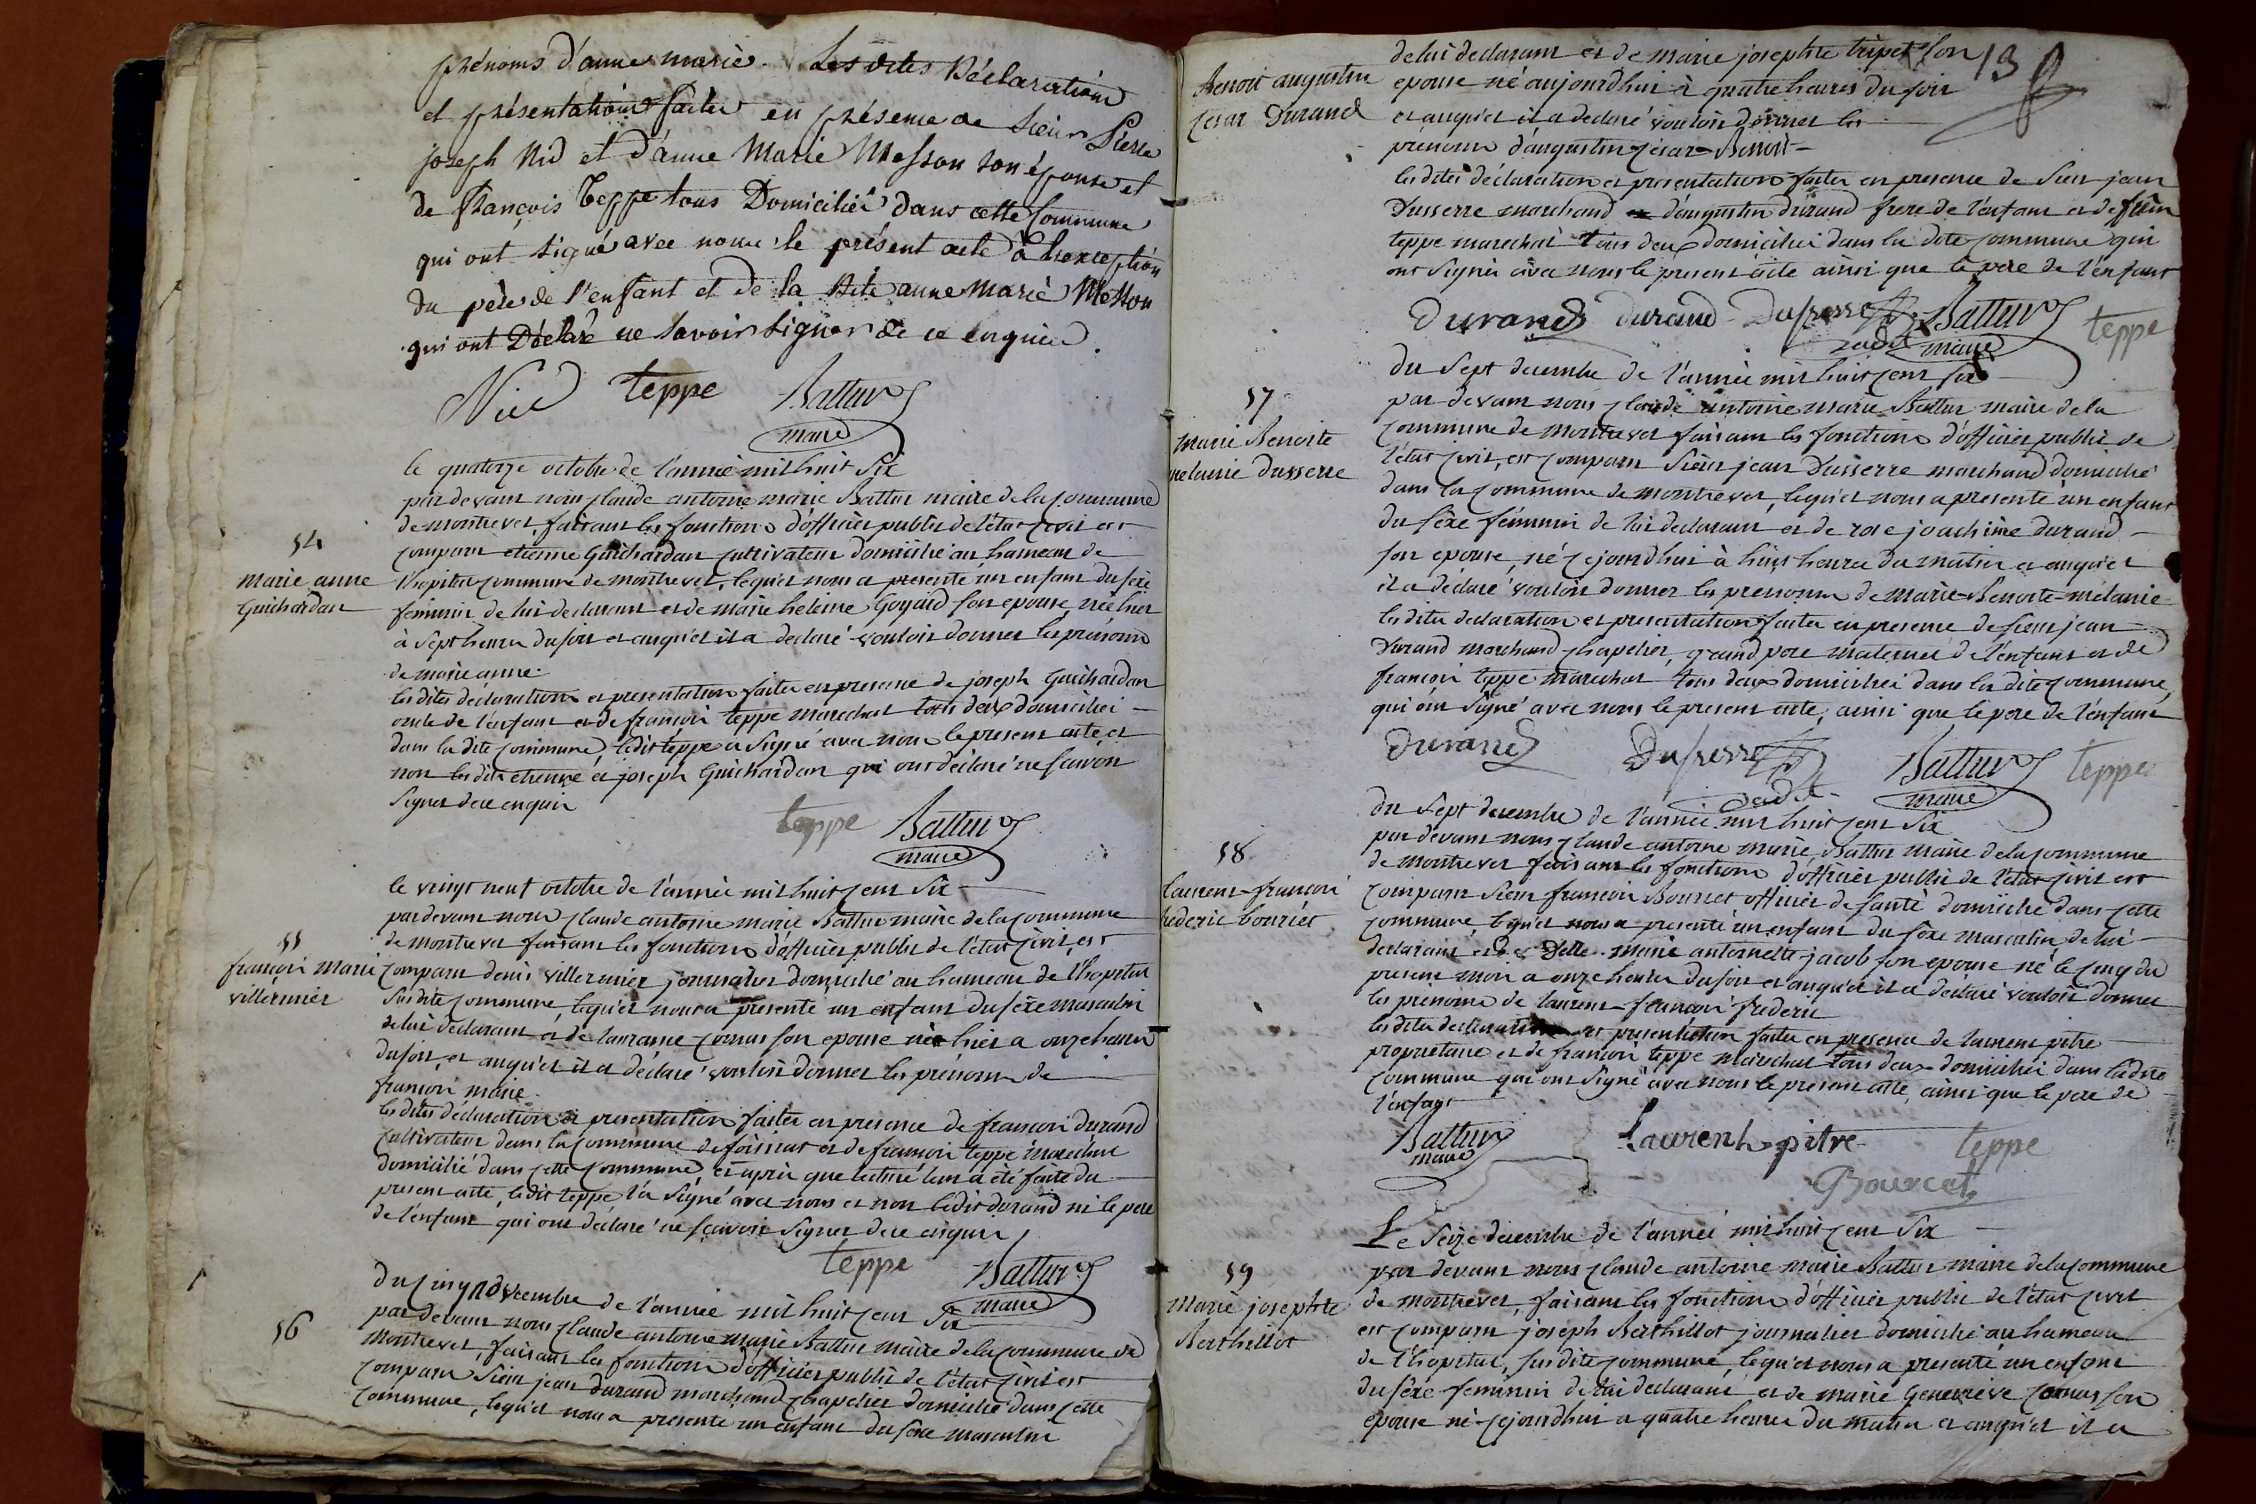 prénoms d'anne marie. Les dites Déclarations
et présentations faites en présence de Sieur Pierre
joseph Nid et d'anne Marie Messon son épouse et
de François Teppe tous Domiciliés dans cette Commune
qui ont signé avec nous le présent acte à l'exception
du père de l'enfant et de la dite anne Marie Messon
qui ont Déclaré ne savoir signer de ce enquis.
Nid teppe Battur
maire
le quatorze octobre de l'année mil huit six
par devant nous Claude antoine marie Battur maire de la Commune
de montrevel faisant les fonctions d'officier public de l'état civil est
54
comparu etienne Guichardan cultivateur domicilié au hameau de
marie anne
Guichardan
l'hopital commune de montrevel, lequel nous a presenté un enfant du sexe
feminin de lui declarant et de marie helene Goyard son epouse, née hier
à sept heures du soir et auquel il a declaré vouloir donner les prénoms
de marie anne.
les dites déclaration et presentation faites en presence de joseph Guichardan
oncle de l'enfant et de francois teppe marechal tous deux domiciliés
dans la dite Commune, ledit teppe a signé avec nous le present acte, et
non les dits etienne et joseph Guichardan qui ont déclaré ne savoir
signer de ce enquis
teppe Battur
maire
le vingt neuf octobre de l'année mil huit cent six
par devant nous Claude antoine marie Battur maire de la Commune
de montrevel faisant les fonctions d'officier public de l'état civil, est
55
francois marie
villermier
comparu denis villermier journalier domicilié au hameau de l'hopital
susdite commune, lequel nous a presenté un enfant du sexe masculin
de lui declarant et de Cornus son epouse né hier a onze heures
du soir, et auquel il a déclaré vouloir donner les prénoms de
francois marie.
les dites déclaration et presentation faites en presence de francois durand
cultivateur dans la commune de foissiat et de francois teppe marechal
domicilié dans cette Commune, et après que lecture leur a été faite du
present acte, ledit teppe l'a signé avec nous et non ledit durand ni le pere
de l'enfant qui ont déclaré ne savoir signer de ce enquis
teppe Battur
maire
du cinq novembre de l'année mil huit cent six
56
par devant nous Claude antoine marie Battur maire de la commune de
montrevel, faisant les fonctions d'officier public de l'état civil est
comparu Sieur jean durand marchand chapelier domicilié dans cette
commune, lequel nous a presenté un enfant du sexe masculin
139
de lui declarant et de marie josephte tripet son
Benoit augustin
Cesar Durand
epouse né aujourdhui à quatre heures du soir
et auquel il a declaré vouloir donner les
prénoms d'augustin Cesar Benoit
les dites déclaration et presentation faites en presence de Sieur jean
Dusserre marchand d'augustin durand frere de l'enfant et de
teppe marechal tous deux domiciliés dans la dite commune qui
ont signés avec nous le present acte ainsi que le pere de l'enfant
Durand durand Dusserre Battur teppe
maire
du Sept decembre de l'année mil huit cent six
57
marie Benoite
melanie Dusserre
par devant nous Claude antoine marie Battur maire de la
commune de montrevel faisant les fonctions d'officier public de
l'état civil, est comparu Sieur jean Dusserre marchand domicilié
dans la commune de montrevel, lequel nous a presenté un enfant
du sexe féminin de lui declarant et de rose joachime durand
son epouse, né cejourdhui à huit heures du matin et auquel
il a déclaré vouloir donner les prenoms de marie-Benoite-mélanie
les dites declaration et presentation faites en presence de sieur jean
Durand marchand chapelier, grand pere maternel de l'enfant et de
francois teppe marechal tous deux domiciliés dans la dite commune,
qui ont signé avec nous le present acte, ainsi que le pere de l'enfant
Durand Dusserre Battur teppe
maire
du Sept decembre de l'année mil huit cent six
58
laurent-francois
frederic bourcet
par devant nous Claude antoine marie Battur maire de la commune
de montrevel faisant les fonctions d'officier public de l'état civil est
comparu Sieur francois Bourcet officier de santé domicilié dans cette
commune, lequel nous a presenté un enfant du sexe masculin de lui
declarant et de Delle marie antoinette jacob son epouse né le cinq du
present mois a onze heures du soir et auquel il a déclaré vouloir donner
les prénoms de laurent francois frederic
les dites declaration et presentation faites en presence de laurent pitre
proprietaire et de francois teppe marechal tous deux domiciliés dans ladite
commune qui ont signé avec nous le present acte, ainsi que le pere de
l'enfant
Battur Laurent pitre teppe
maire
Bourcet
Le Seize decembre de l'année mil huit cent six
59
Marie josephte
Berthillot
par devant nous Claude antoine marie Battur maire de la commune
de montrevel, faisant les fonctions d'officier public de l'état civil
est comparu joseph Berthillot journalier domicilié au hameau
de l'hopital, susdite commune, lequel nous a presenté un enfant
du sexe feminin de lui declarant et de marie Genevieve Cornus son
epouse né cejourdhui a quatre heures du matin et auquel il a